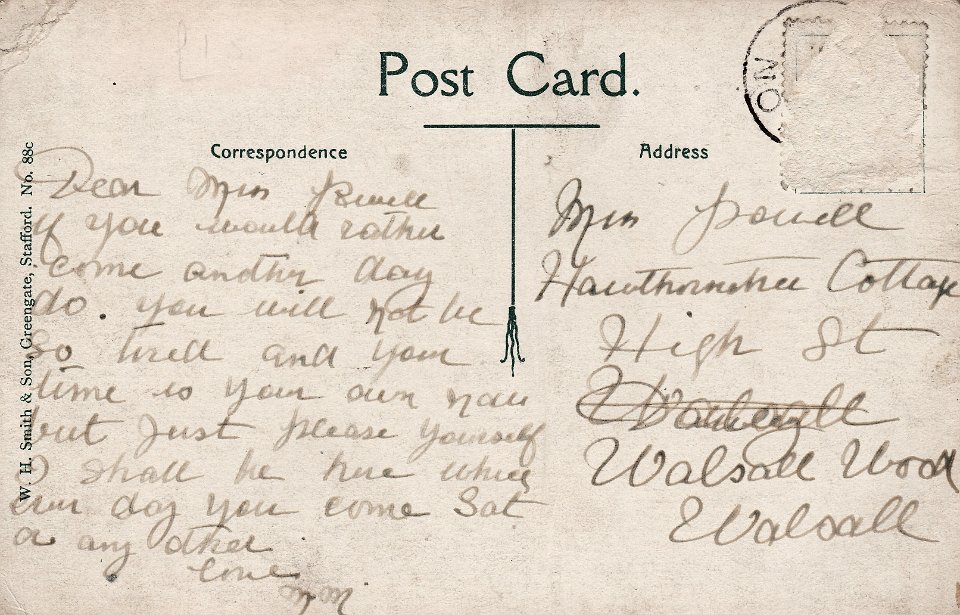 Post Card.
Correspondence
Address
W. H. Smith & Son, Greengate, Stafford. No. 88c
ON
Dear Mrs Powell
if you would rather
come another day
do. you will not be
so tired and your
time is your own now
but just please yourself
I shall be here which
ever day you come Sat
or any other
Love
Mrs Powell
Hawthorntree Cottage
High St
Walsall Wood
Walsall